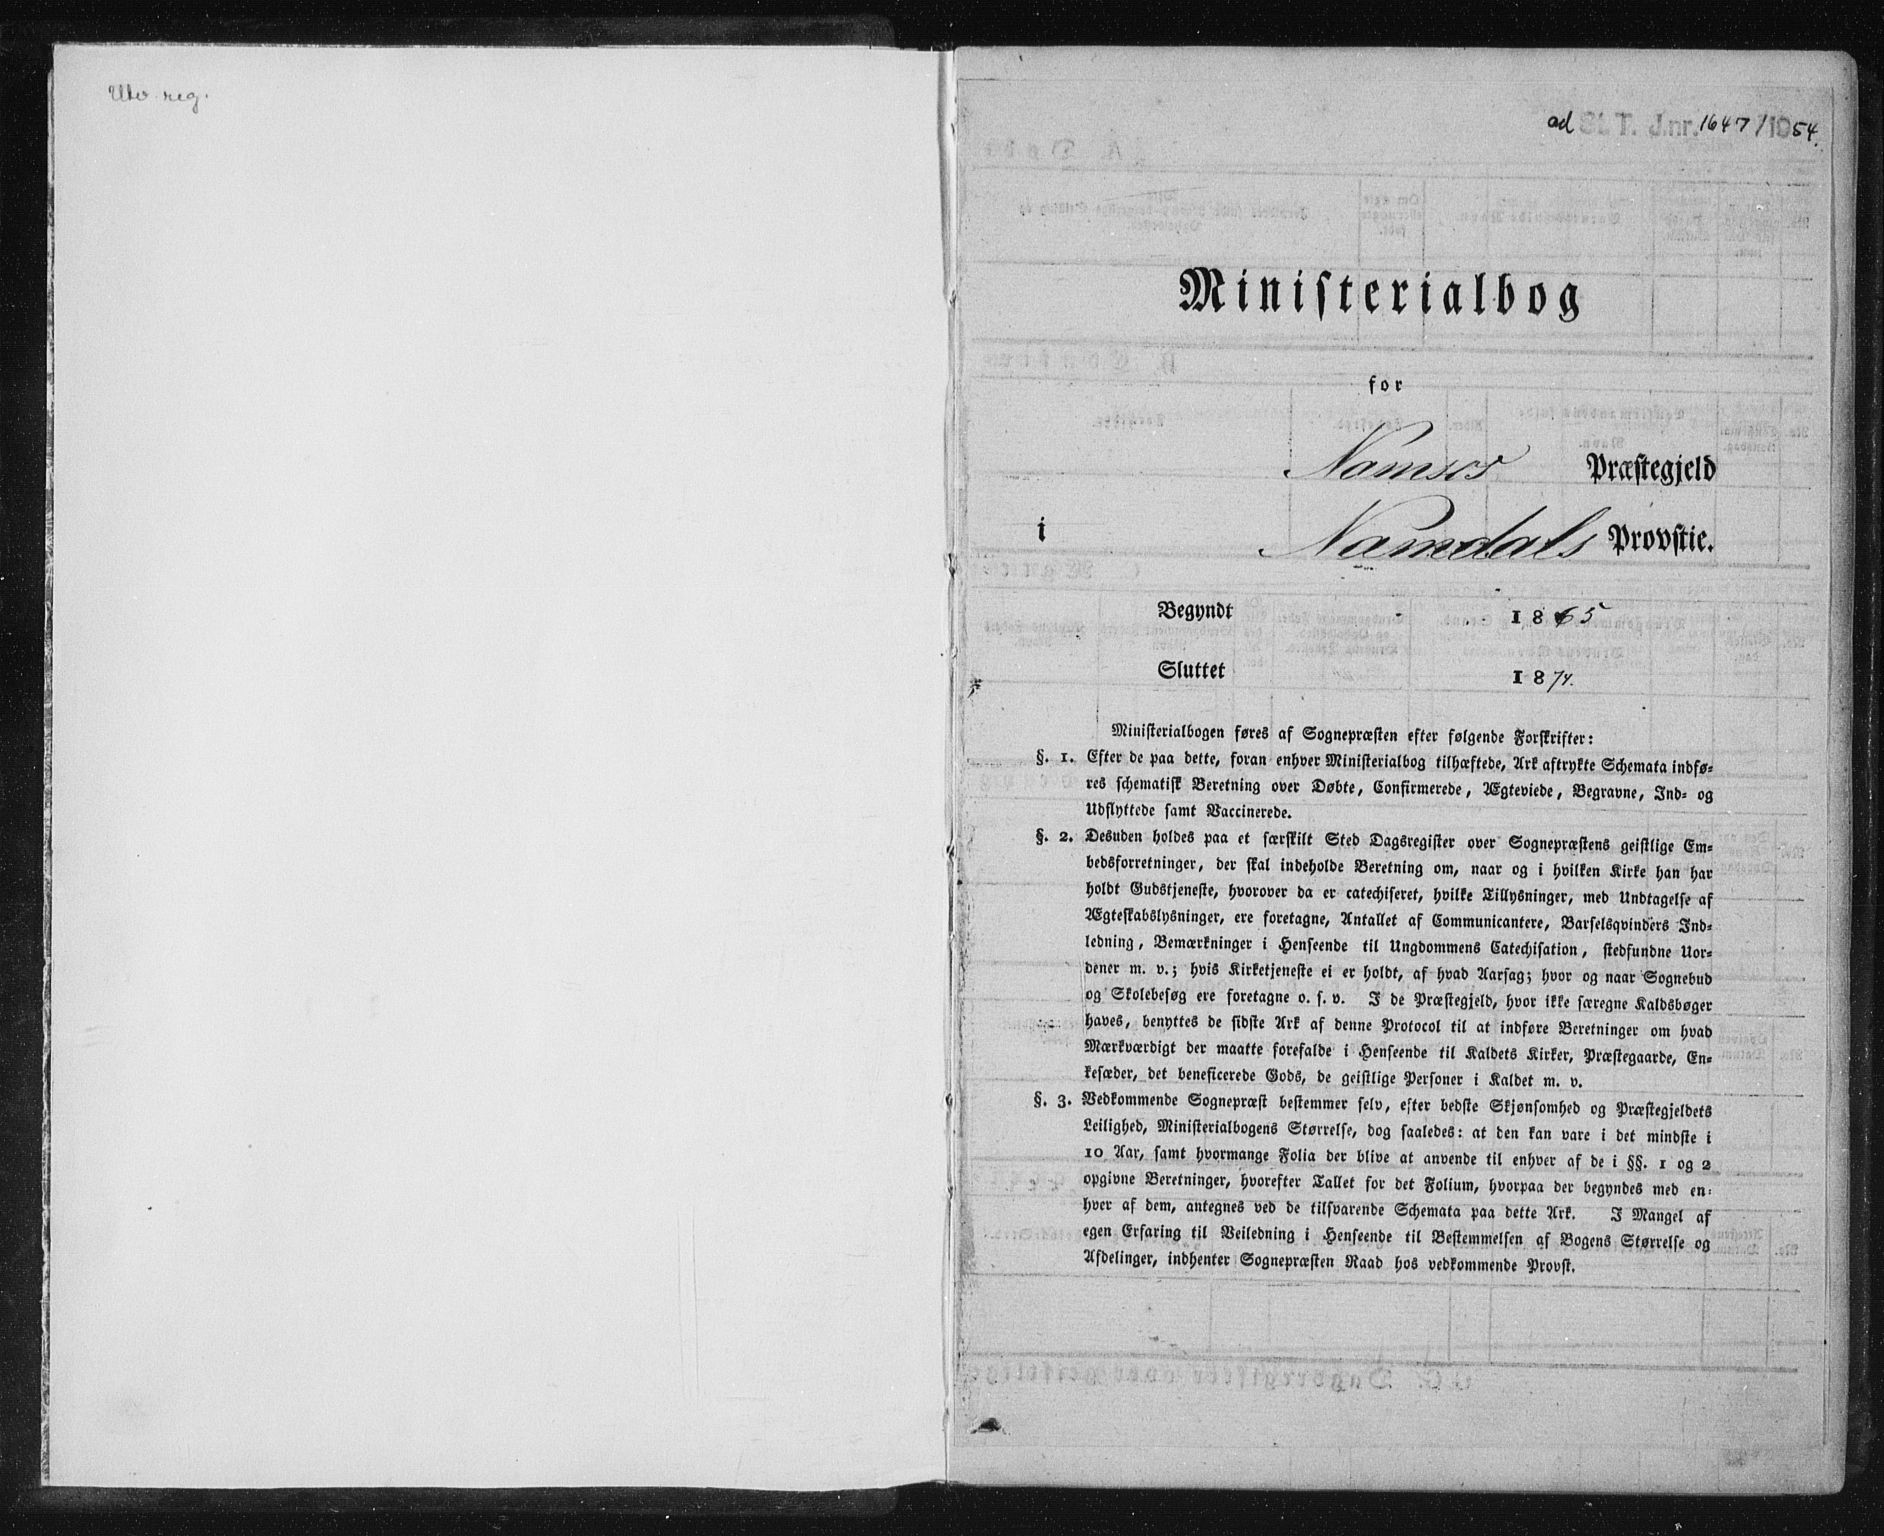 Utv. reg.
ad St. T. J.nr. 1647/1954.
Ministerialbog
for
Namsos Præstegjeld
i Namdals Provstie.
Begyndt 1865
Sluttet 1874.
Ministerialbogen føres af Sognepræsten efter følgende Forskrifter:
§. 1. Efter de paa dette, foran enhver Ministerialbog tilhæftede, Ark aftrykte Schemata indfø-
res schematisk Beretning over Døbte, Confirmerede, Ægteviede, Begravne, Ind- og
Udflyttede samt Vaccinerede.
§. 2. Desuden holdes paa et særskilt Sted Dagsregister over Sognepræstens geistlige Em-
bedsforretninger, der skal indeholde Beretning om, naar og i hvilken Kirke han har
holdt Gudstjeneste, hvorover da er catechiseret, hvilke Tillysninger, med Undtagelse af
Ægteskabslysninger, ere foretagne, Antallet af Communicantere, Barselqvinders Ind-
ledning, Bemærkninger i Henseende til Ungdommens Catechisation, stedfundne Uor-
dener m. v.; hvis Kirketjeneste ei er holdt, af hvad Aarsag; hvor og naar Sognebud
og Skolebesøg ere foretagne o. s. v. I de Præstegjeld, hvor ikke særegne Kaldsbøger
haves, benyttes de sidste Ark af denne Protocol til at indføre Beretninger om hvad
Mærkværdigt der maatte forefalde i Henseende til Kaldets Kirker, Præstegaarde, En-
kesæder, det beneficerede Gods, de geistlige Personer i Kaldet m. v.
§. 3. Vedkommende Sognepræst bestemmer selv, efter bedste Skjønsomhed og Præstegjeldets
Leilighed, Ministerialbogens Størrelse, dog saaledes: at den kan vare i det mindste i
10 Aar, samt hvormange Folia der blive at anvende til enhver af de i §§. 1 og 2
opgivne Beretninger, hvorefter Tallet for det Folium, hvorpaa der begyndes med en-
hver af dem, antegnes ved de tilsvarende Schemata paa dette Ark. I Mangel af
egen Erfaring til Veiledning i Henseende til Bestemmelsen af Bogens Størrelse og
Afdelinger, indhenter Sognepræsten Raad hos vedkommende Provst.